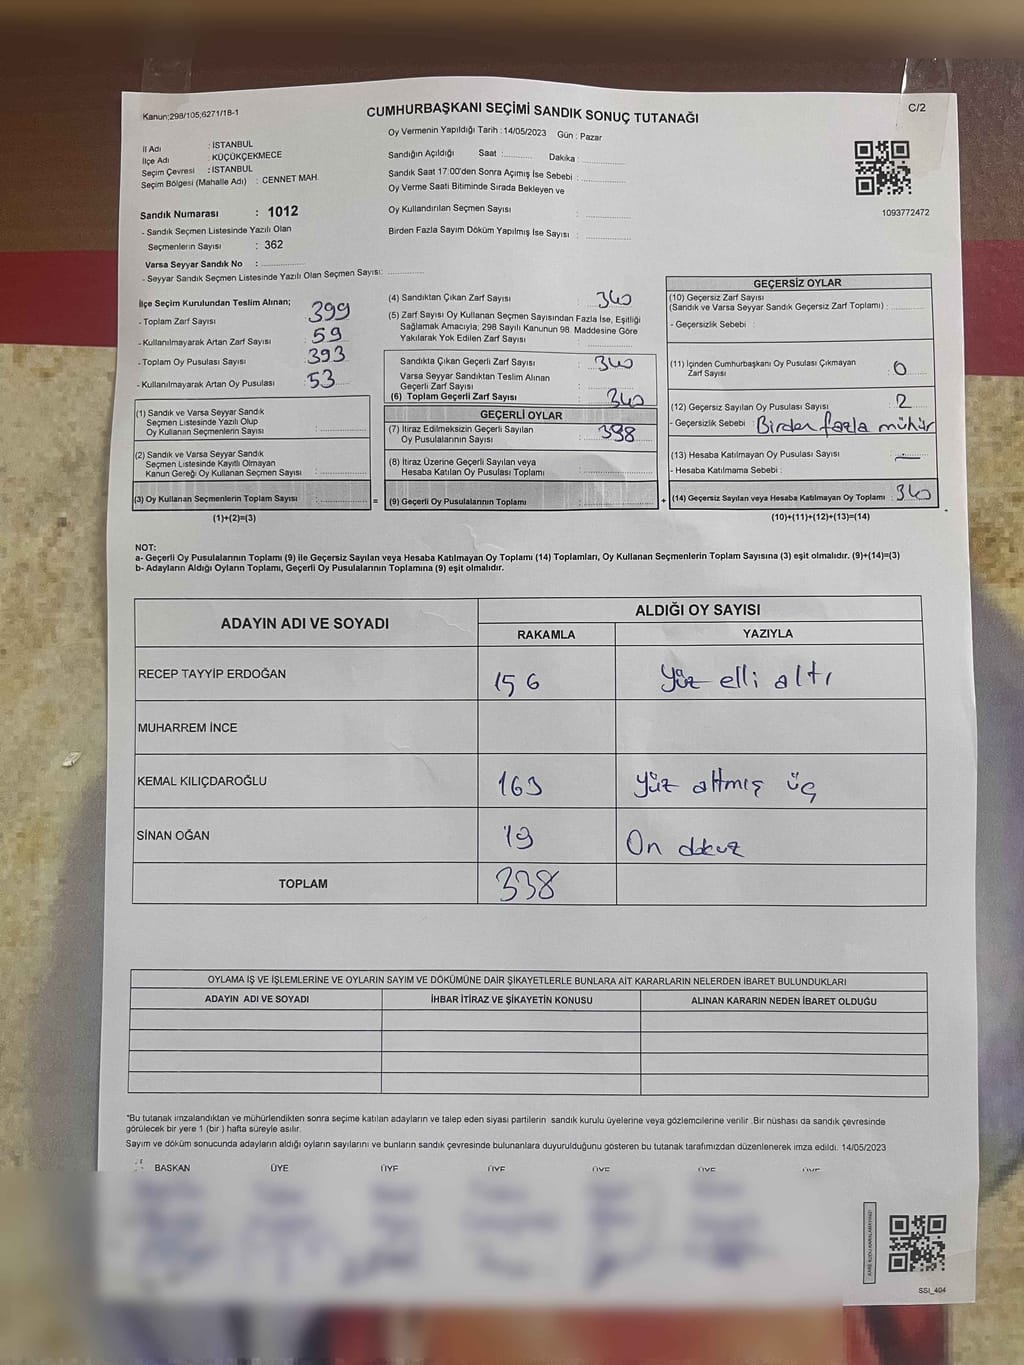 Kanun;298/105;6271/18-1
CUMHURBAŞKANI SEÇİMİ SANDIK SONUÇ TUTANAĞI
C/2
Oy Vermenin Yapıldığı Tarih : 14/05/2023 Gün : Pazar
İl Adı : İSTANBUL
İlçe Adı : KÜÇÜKÇEKMECE
Seçim Çevresi : İSTANBUL
Seçim Bölgesi (Mahalle Adı) : CENNET MAH.
Sandığın Açıldığı Saat :.......... Dakika :..............
Sandık Saat 17:00'den Sonra Açımış İse Sebebi :..............
Oy Verme Saati Bitiminde Sırada Bekleyen ve
Oy Kullandırılan Seçmen Sayısı :..............
Birden Fazla Sayım Döküm Yapılmış İse Sayısı :..............
1093772472
Sandık Numarası : 1012
- Sandık Seçmen Listesinde Yazılı Olan
Seçmenlerin Sayısı : 362
Varsa Seyyar Sandık No :..............
- Seyyar Sandık Seçmen Listesinde Yazılı Olan Seçmen Sayısı: ............
İlçe Seçim Kurulundan Teslim Alınan;
- Toplam Zarf Sayısı 399
- Kullanılmayarak Artan Zarf Sayısı 59
- Toplam Oy Pusulası Sayısı 393
- Kullanılmayarak Artan Oy Pusulası 53
(1) Sandık ve Varsa Seyyar Sandık
Seçmen Listesinde Yazılı Olup
Oy Kullanan Seçmenlerin Sayısı :..............
(2) Sandık ve Varsa Seyyar Sandık
Seçmen Listesinde Kayıtlı Olmayan
Kanun Gereği Oy Kullanan Seçmen Sayısı :..............
(3) Oy Kullanan Seçmenlerin Toplam Sayısı :..............
(1)+(2)=(3)
(4) Sandıktan Çıkan Zarf Sayısı 340
(5) Zarf Sayısı Oy Kullanan Seçmen Sayısından Fazla İse, Eşitliği
Sağlamak Amacıyla; 298 Sayılı Kanunun 98. Maddesine Göre
Yakılarak Yok Edilen Zarf Sayısı :..............
Sandıkta Çıkan Geçerli Zarf Sayısı : 340
Varsa Seyyar Sandıktan Teslim Alınan
Geçerli Zarf Sayısı :..............
(6) Toplam Geçerli Zarf Sayısı : 340
GEÇERLİ OYLAR
(7) İtiraz Edilmeksizin Geçerli Sayılan
Oy Pusulalarının Sayısı : 398
(8) İtiraz Üzerine Geçerli Sayılan veya
Hesaba Katılan Oy Pusulası Toplamı :..............
= (9) Geçerli Oy Pusulalarının Toplamı :..............
GEÇERSİZ OYLAR
(10) Geçersiz Zarf Sayısı
(Sandık ve Varsa Seyyar Sandık Geçersiz Zarf Toplamı) :........
- Geçersizlik Sebebi :
(11) İçinden Cumhurbaşkanı Oy Pusulası Çıkmayan
Zarf Sayısı : 0
(12) Geçersiz Sayılan Oy Pusulası Sayısı : 2
- Geçersizlik Sebebi : Birden fazla mühür
(13) Hesaba Katılmayan Oy Pusulası Sayısı : —
- Hesaba Katılmama Sebebi :
+ (14) Geçersiz Sayılan veya Hesaba Katılmayan Oy Toplamı : 340
(10)+(11)+(12)+(13)=(14)
NOT:
a- Geçerli Oy Pusulalarının Toplamı (9) ile Geçersiz Sayılan veya Hesaba Katılmayan Oy Toplamı (14) Toplamları, Oy Kullanan Seçmenlerin Toplam Sayısına (3) eşit olmalıdır. (9)+(14)=(3)
b- Adayların Aldığı Oyların Toplamı, Geçerli Oy Pusulalarının Toplamına (9) eşit olmalıdır.
ADAYIN ADI VE SOYADI
ALDIĞI OY SAYISI
RAKAMLA YAZIYLA
RECEP TAYYİP ERDOĞAN 156 Yüz elli altı
MUHARREM İNCE
KEMAL KILIÇDAROĞLU 163 Yüz altmış üç
SİNAN OĞAN 19 On dokuz
TOPLAM 338
OYLAMA İŞ VE İŞLEMLERİNE VE OYLARIN SAYIM VE DÖKÜMÜNE DAİR ŞİKAYETLERLE BUNLARA AİT KARARLARIN NELERDEN İBARET BULUNDUKLARI
ADAYIN ADI VE SOYADI İHBAR İTİRAZ VE ŞİKAYETİN KONUSU ALINAN KARARIN NEDEN İBARET OLDUĞU
*Bu tutanak imzalandıktan ve mühürlendikten sonra seçime katılan adayların ve talep eden siyasi partilerin sandık kurulu üyelerine veya gözlemcilerine verilir .Bir nüshası da sandık çevresinde
görülecek bir yere 1 (bir ) hafta süreyle asılır.
Sayım ve döküm sonucunda adayların aldığı oyların sayılarını ve bunların sandık çevresinde bulunanlara duyurulduğunu gösteren bu tutanak tarafımızdan düzenlenerek imza edildi. 14/05/2023
BAŞKAN ÜYE ÜYE ÜYE ÜYE ÜYE ÜYE
SSI_404